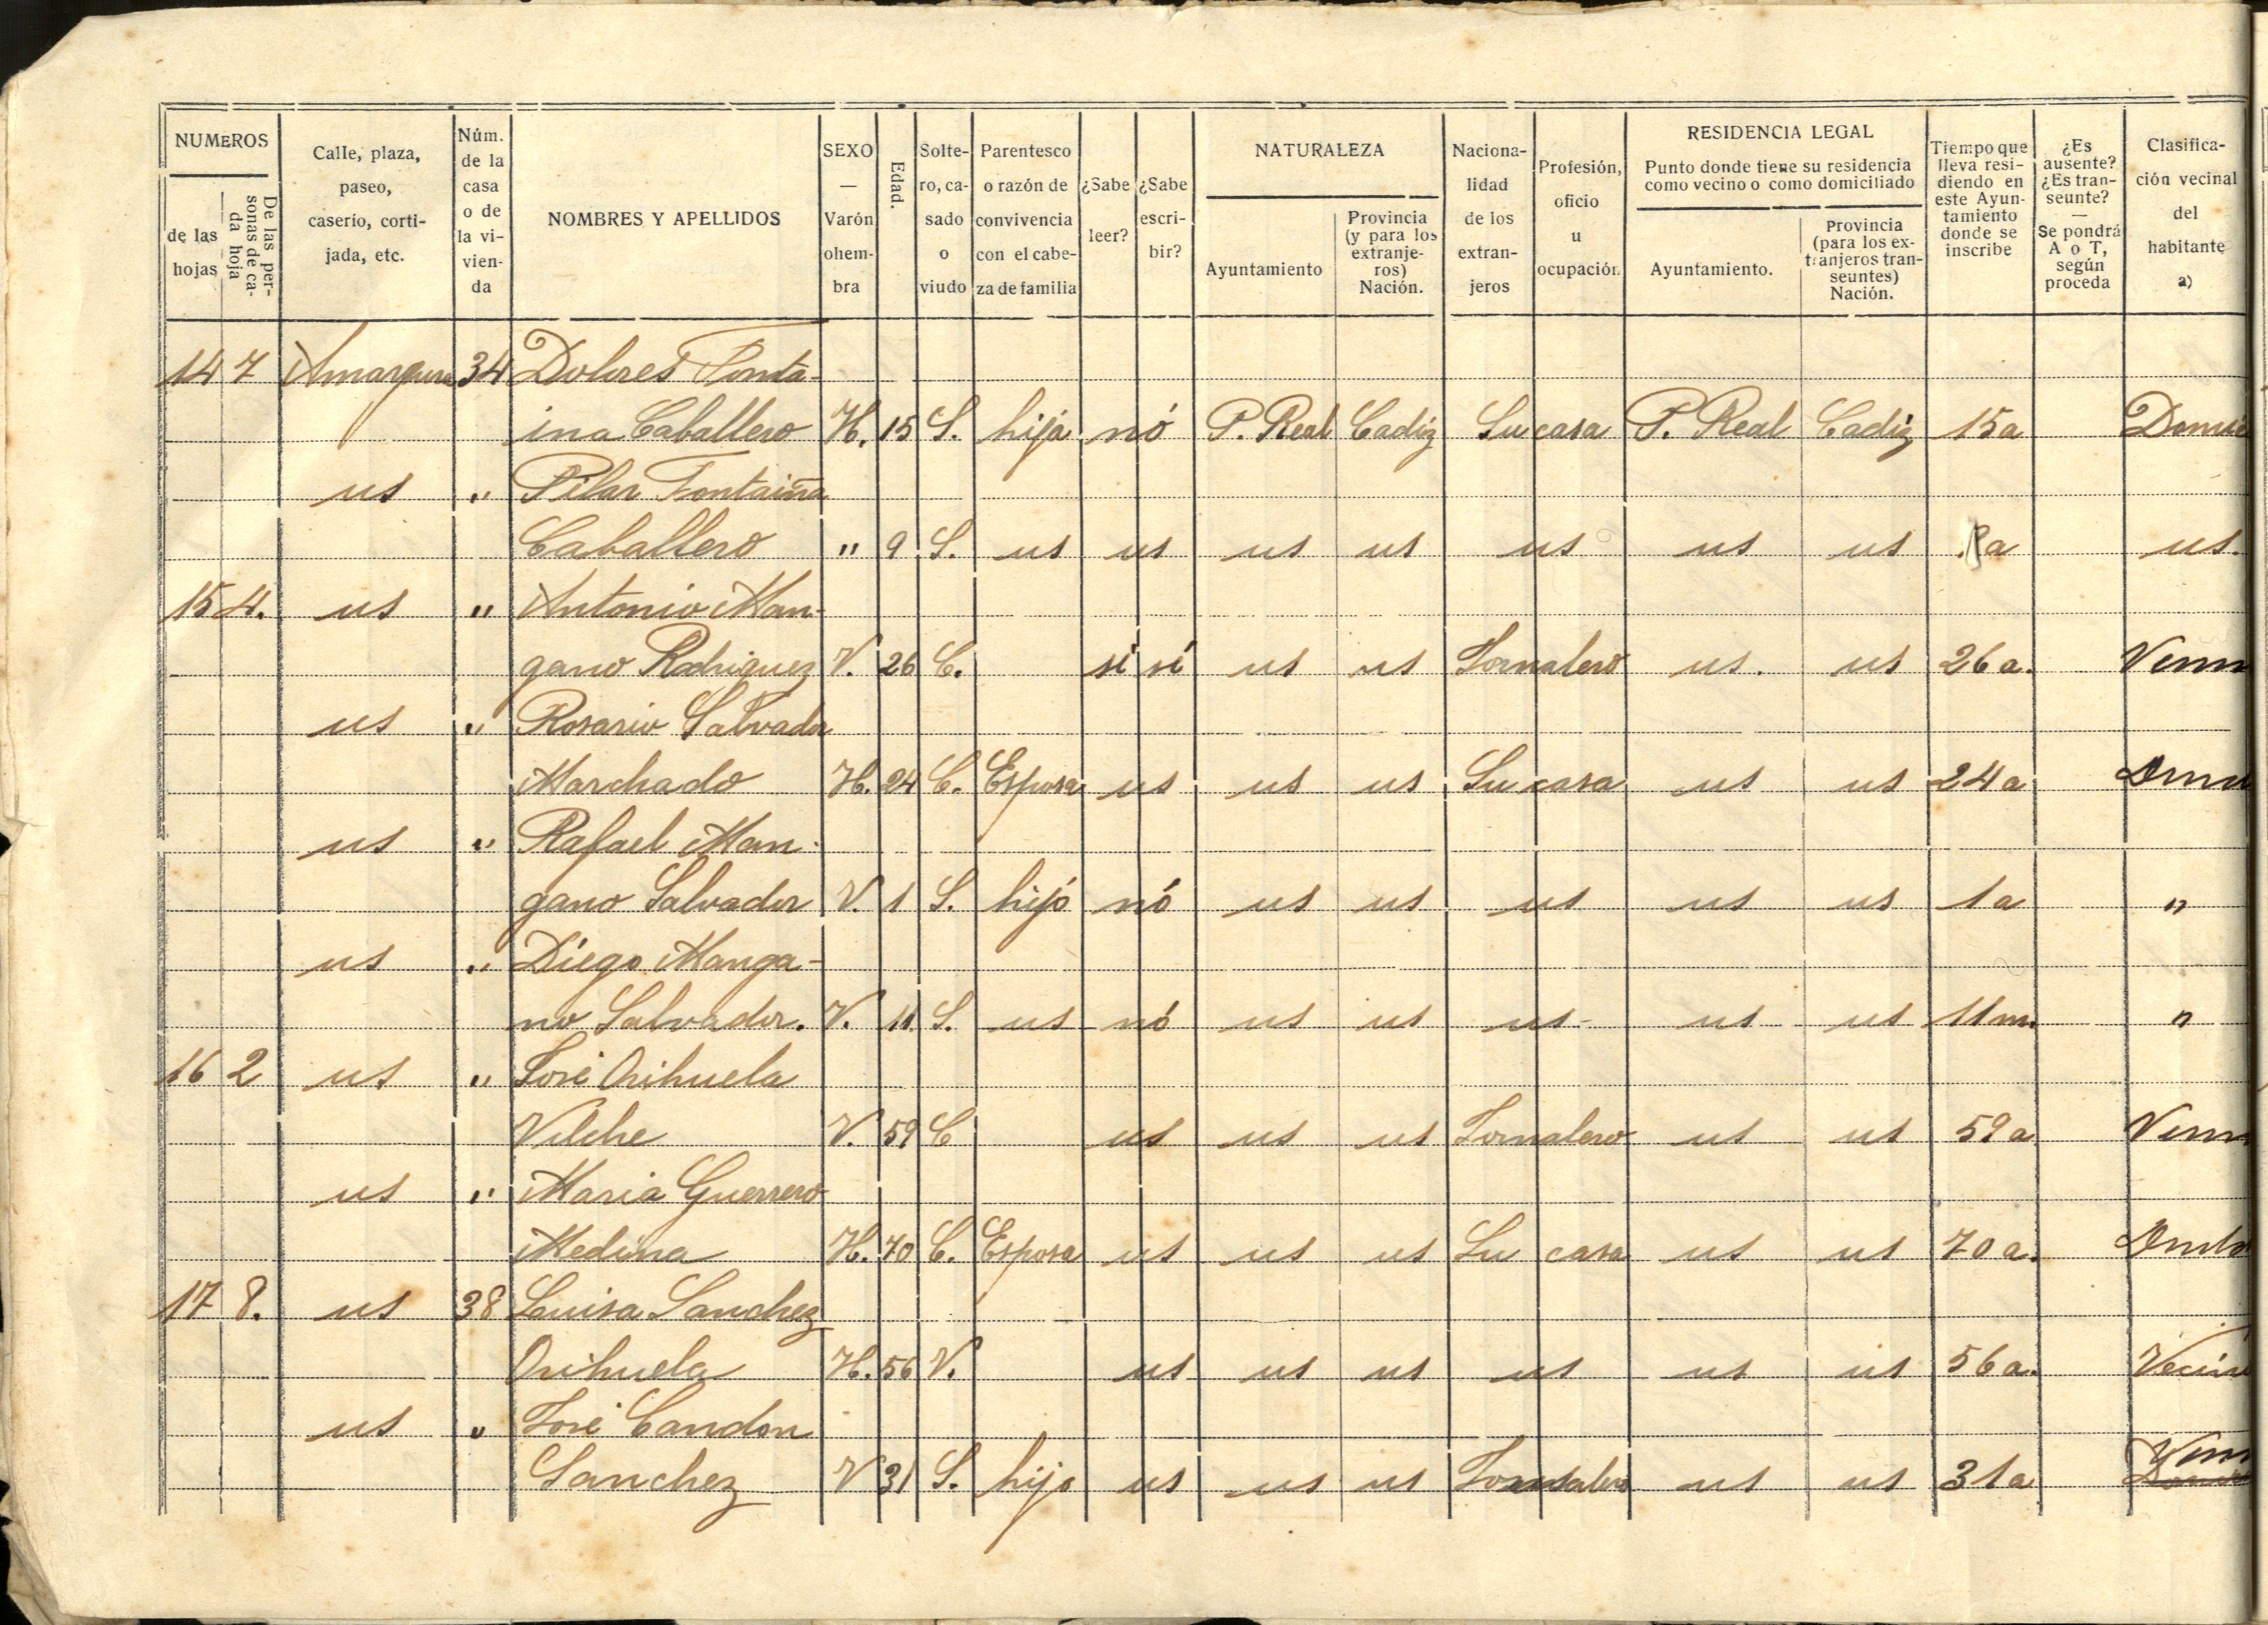 NUMEROS
de las hojas
De las personas de cada hoja
Calle, plaza, paseo, caserío, cortijada, etc.
Núm. de la casa o de la vivienda
NOMBRES Y APELLIDOS
SEXO — Varón o hembra
Edad.
Soltero, casado o viudo
Parentesco o razón de convivencia con el cabeza de familia
¿Sabe leer?
¿Sabe escribir?
NATURALEZA
Ayuntamiento
Provincia (y para los extranjeros) Nación.
Nacionalidad de los extranjeros
Profesión, oficio u ocupación
RESIDENCIA LEGAL
Punto donde tiene su residencia como vecino o como domiciliado
Ayuntamiento.
Provincia (para los extranjeros transeuntes) Nación.
Tiempo que lleva residiendo en este Ayuntamiento donde se inscribe
¿Es ausente? ¿Es transeunte? — Se pondrá A o T, según proceda
Clasificación vecinal del habitante a)
14 7 Amargura 34 Dolores Fonta-
ina Caballero H. 15 S. hija nó P. Real Cadiz Su casa P. Real Cadiz 15 a
us " Pilar Fontaiña
Caballero " 9 S. us us us us us us us a us.
15 4. us " Antonio Man-
gano Rodriguez V. 26 C. si si us us Jornalero us. us 26 a.
us " Rosario Salvador
Marchado H. 24 C. Esposa us us us Su casa us us 24 a
us " Rafael Man-
gano Salvador V. 1 S. hijo nó us us us us us 1 a "
us " Diego Manga-
no Salvador. V. 11 S. us nó us us us us us 11 m. "
16 2 us " José Orihuela
Vilche V. 59 C us us us Jornalero us us 59 a
us " Maria Guerrero
Medina H. 70 C. Esposa us us us Su casa us us 70 a.
17 8. us 38 Luisa Sanchez
Orihuela H. 56 V. us us us us us us 56 a. Vecin
us " José Candon
Sanchez V 31 S. hijo us us us Jornalero us us 31 a